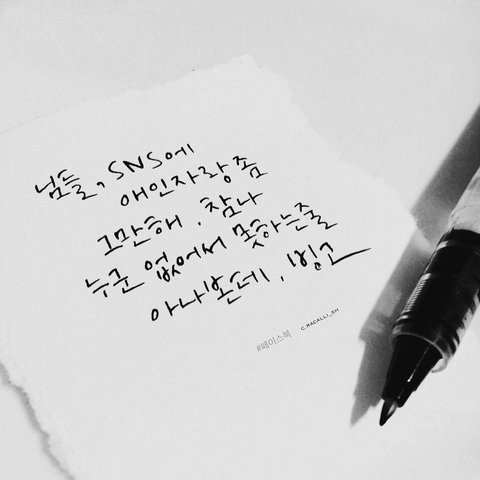 님들, SNS에
애인자랑좀
그만해. 참나
누군 없어서 못하는줄
아나본데, 빙고
#페이스북 C.MACALLI_SH